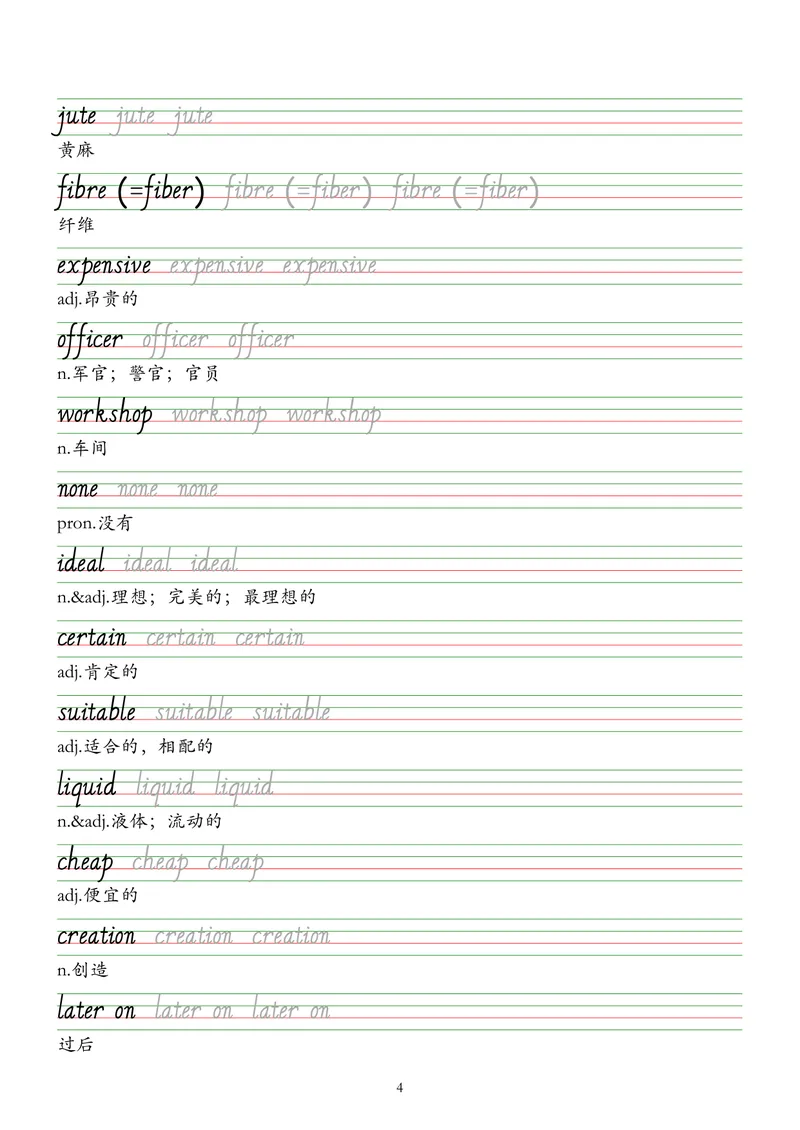 jute jute jute
黄麻
fibre (=fiber) fibre (=fiber) fibre (=fiber)
纤维
expensive expensive expensive
adj.昂贵的
officer officer officer
n.军官；警官；官员
workshop workshop workshop
n.车间
none none none
pron.没有
ideal ideal ideal
n.&adj.理想；完美的；最理想的
certain certain certain
adj.肯定的
suitable suitable suitable
adj.适合的，相配的
liquid liquid liquid
n.&adj.液体；流动的
cheap cheap cheap
adj.便宜的
creation creation creation
n.创造
later on later on later on
过后
4